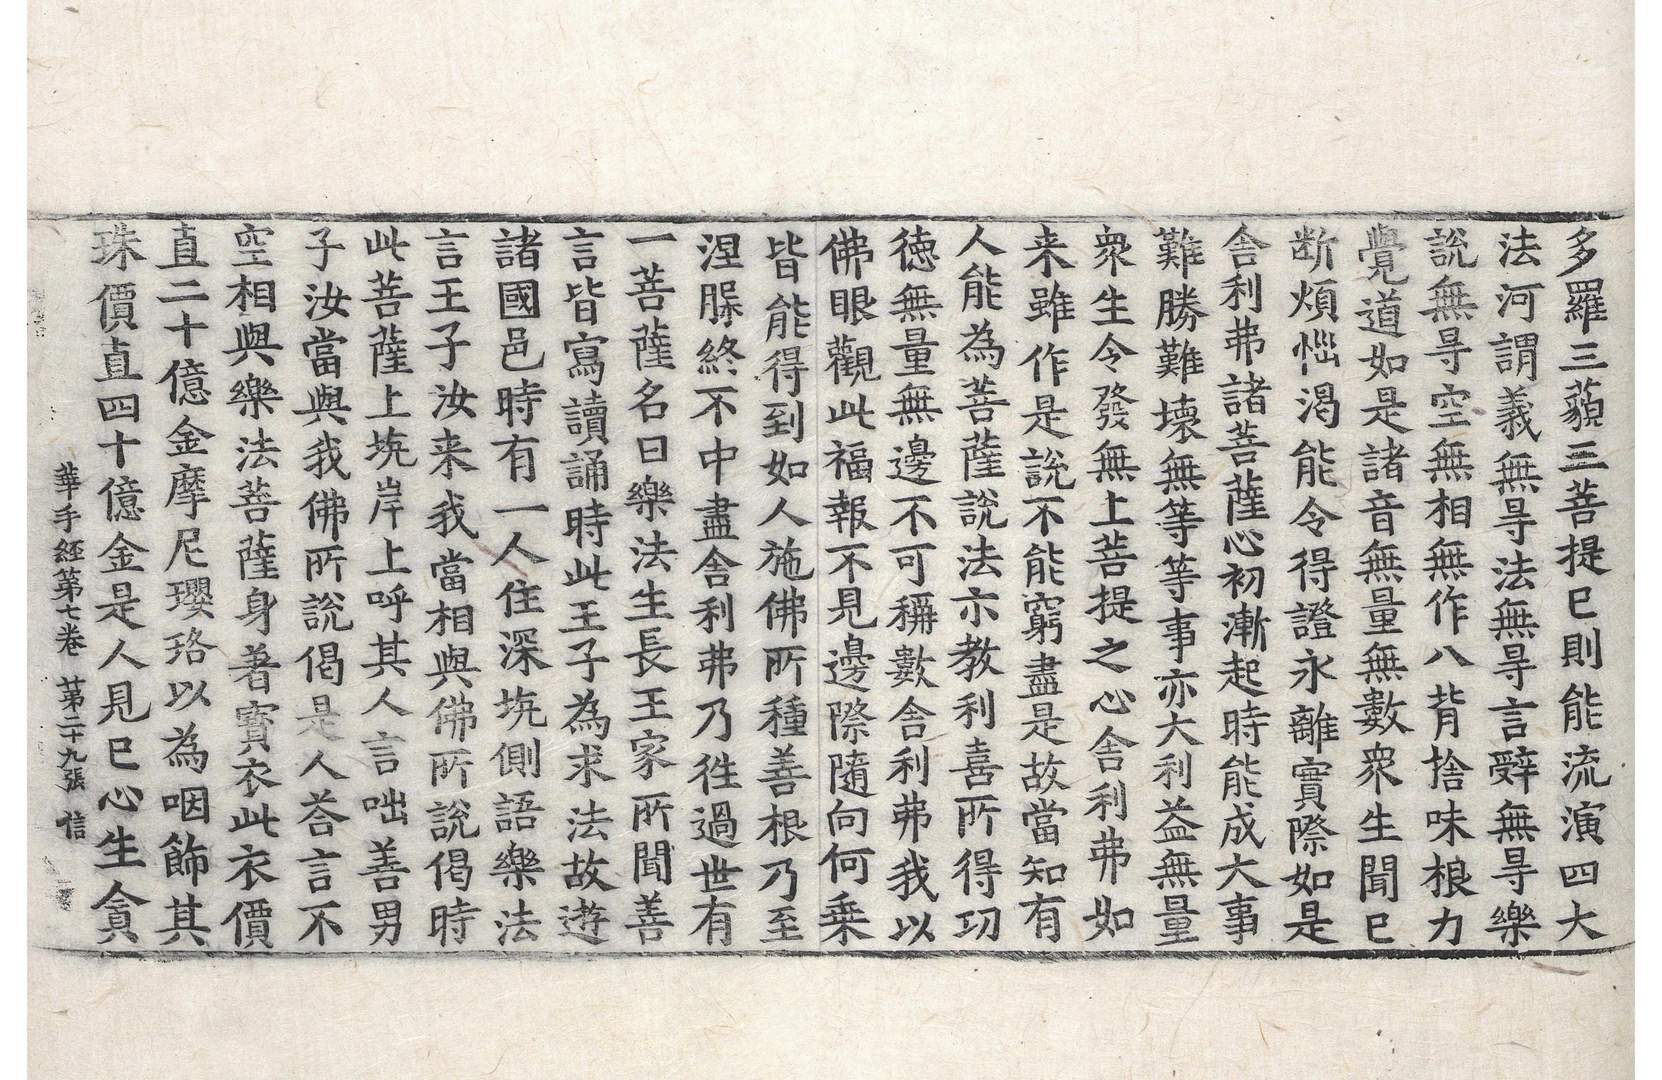 多羅三藐三菩提已則能流演四大
法河謂義無㝵法無㝵言辝無㝵樂
說無㝵空無相無作八背捨味根力
覺道如是諸音無量無數衆生聞已
断煩惱渴能令得證永離實際如是
舎利弗諸菩薩心初漸起時能成大事
難勝難壊無等等事亦大利益無量
衆生令發無上菩提之心舎利弗如
来雖作是說不能窮盡是故當知有
人能為菩薩說法示教利喜所得功
德無量無邊不可稱數舎利弗我以
佛眼觀此福報不見邊際隨向何乗
皆能得到如人施佛所種善根乃至
涅槃終不中盡舎利弗乃徃過世有
一菩薩名曰樂法生長王家所聞善
言皆寫讀誦時此王子為求法故遊
諸國邑時有一人住深坑側語樂法
言王子汝来我當相與佛所說偈時
此菩薩上坑岸上呼其人言咄善男
子汝當與我佛所說偈是人荅言不
空相與樂法菩薩身著寳衣此衣價
直二十億金摩尼瓔珞以為咽飾其
珠價直四十億金是人見已心生貪
華手經第七卷 第二十九張 信